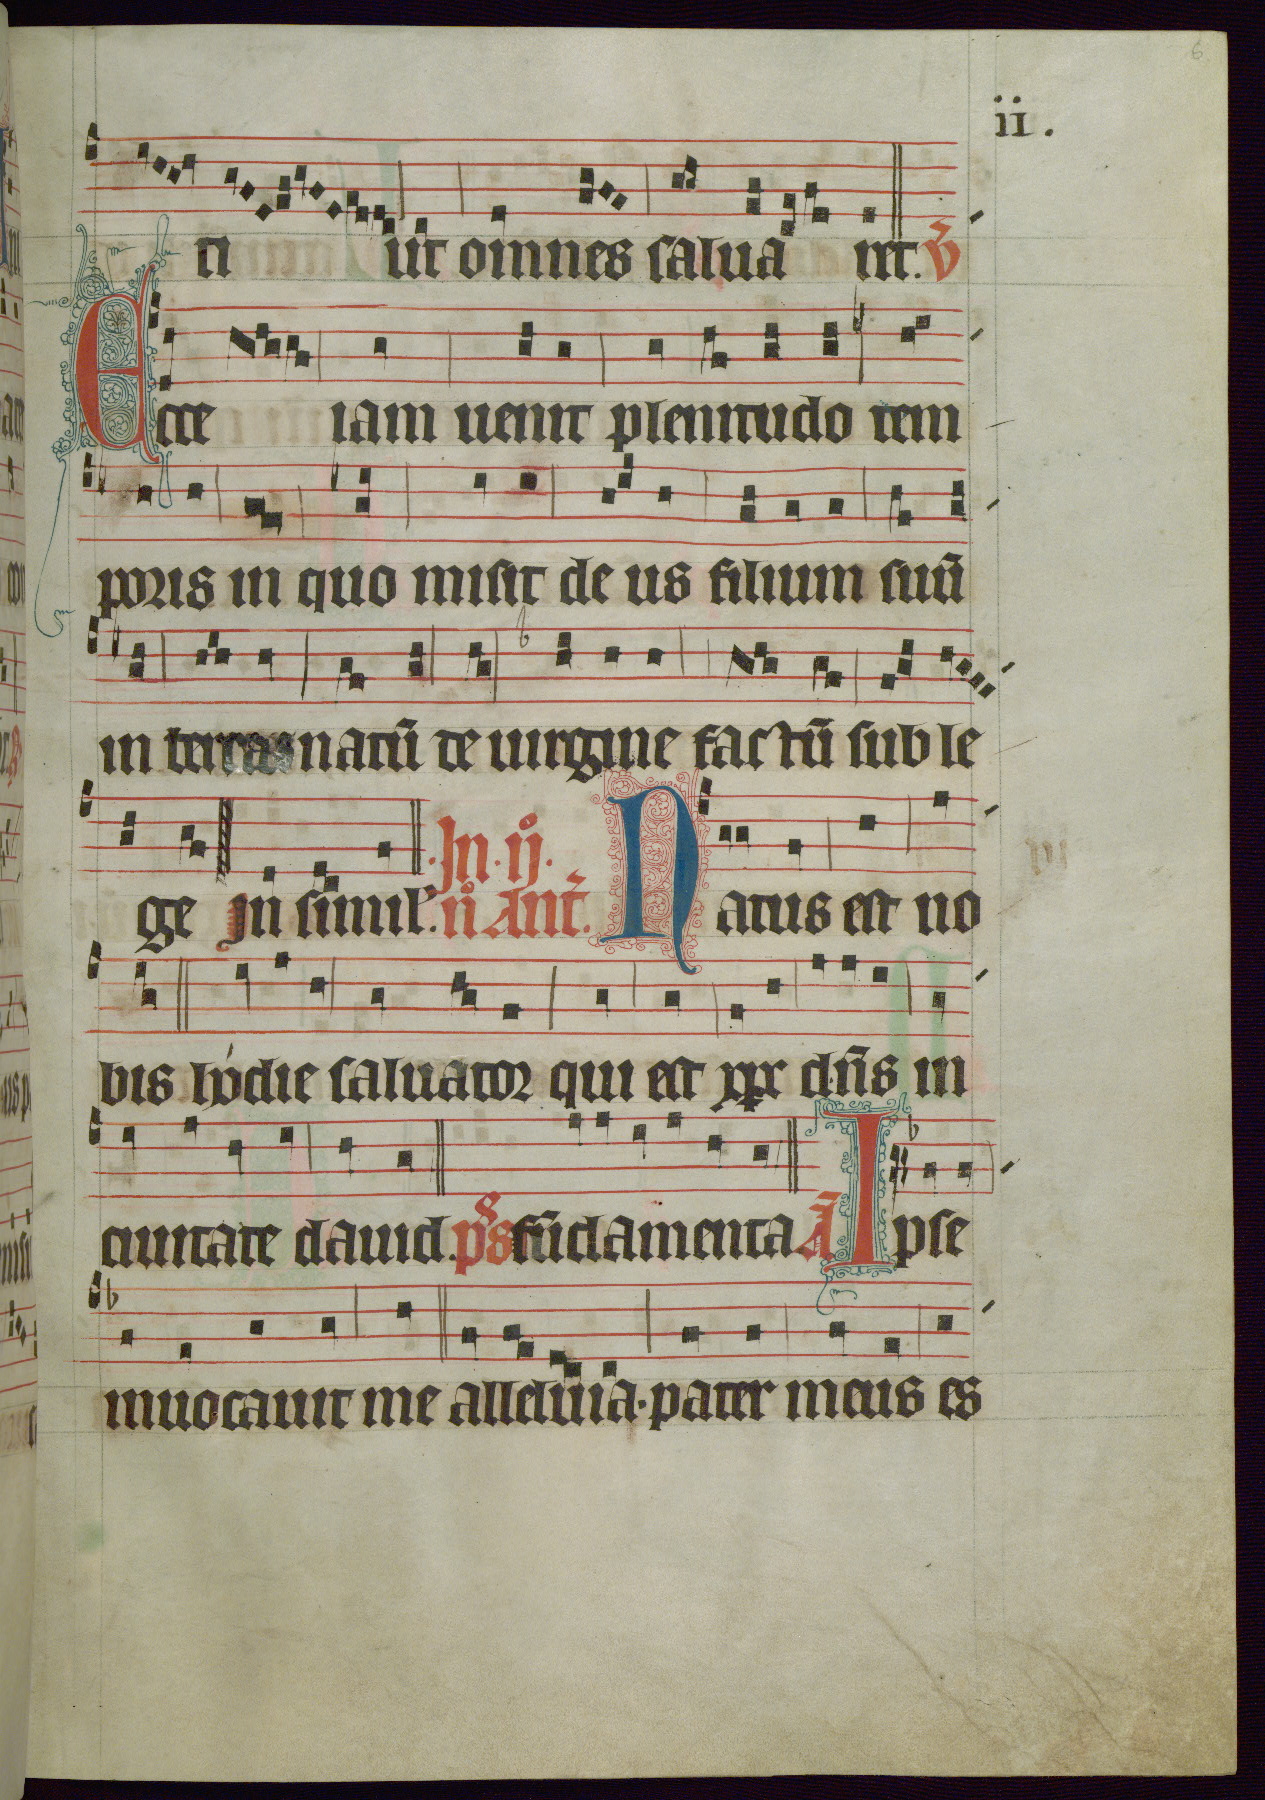 6
ii.
ti ut omnes salua ret. v̄
Ecce iam uenit plenitudo tem
poris in quo misit de us filium suū
in terras natū de uirgine factū sub le
ge In simil'. In. ij.
n̊ Ant̄. Natus est no
bis hodie saluator qui est xpc dn̄s in
ciuitate dauid. ps fūdamenta A Ipse
inuocauit me alleluia. pater meus es